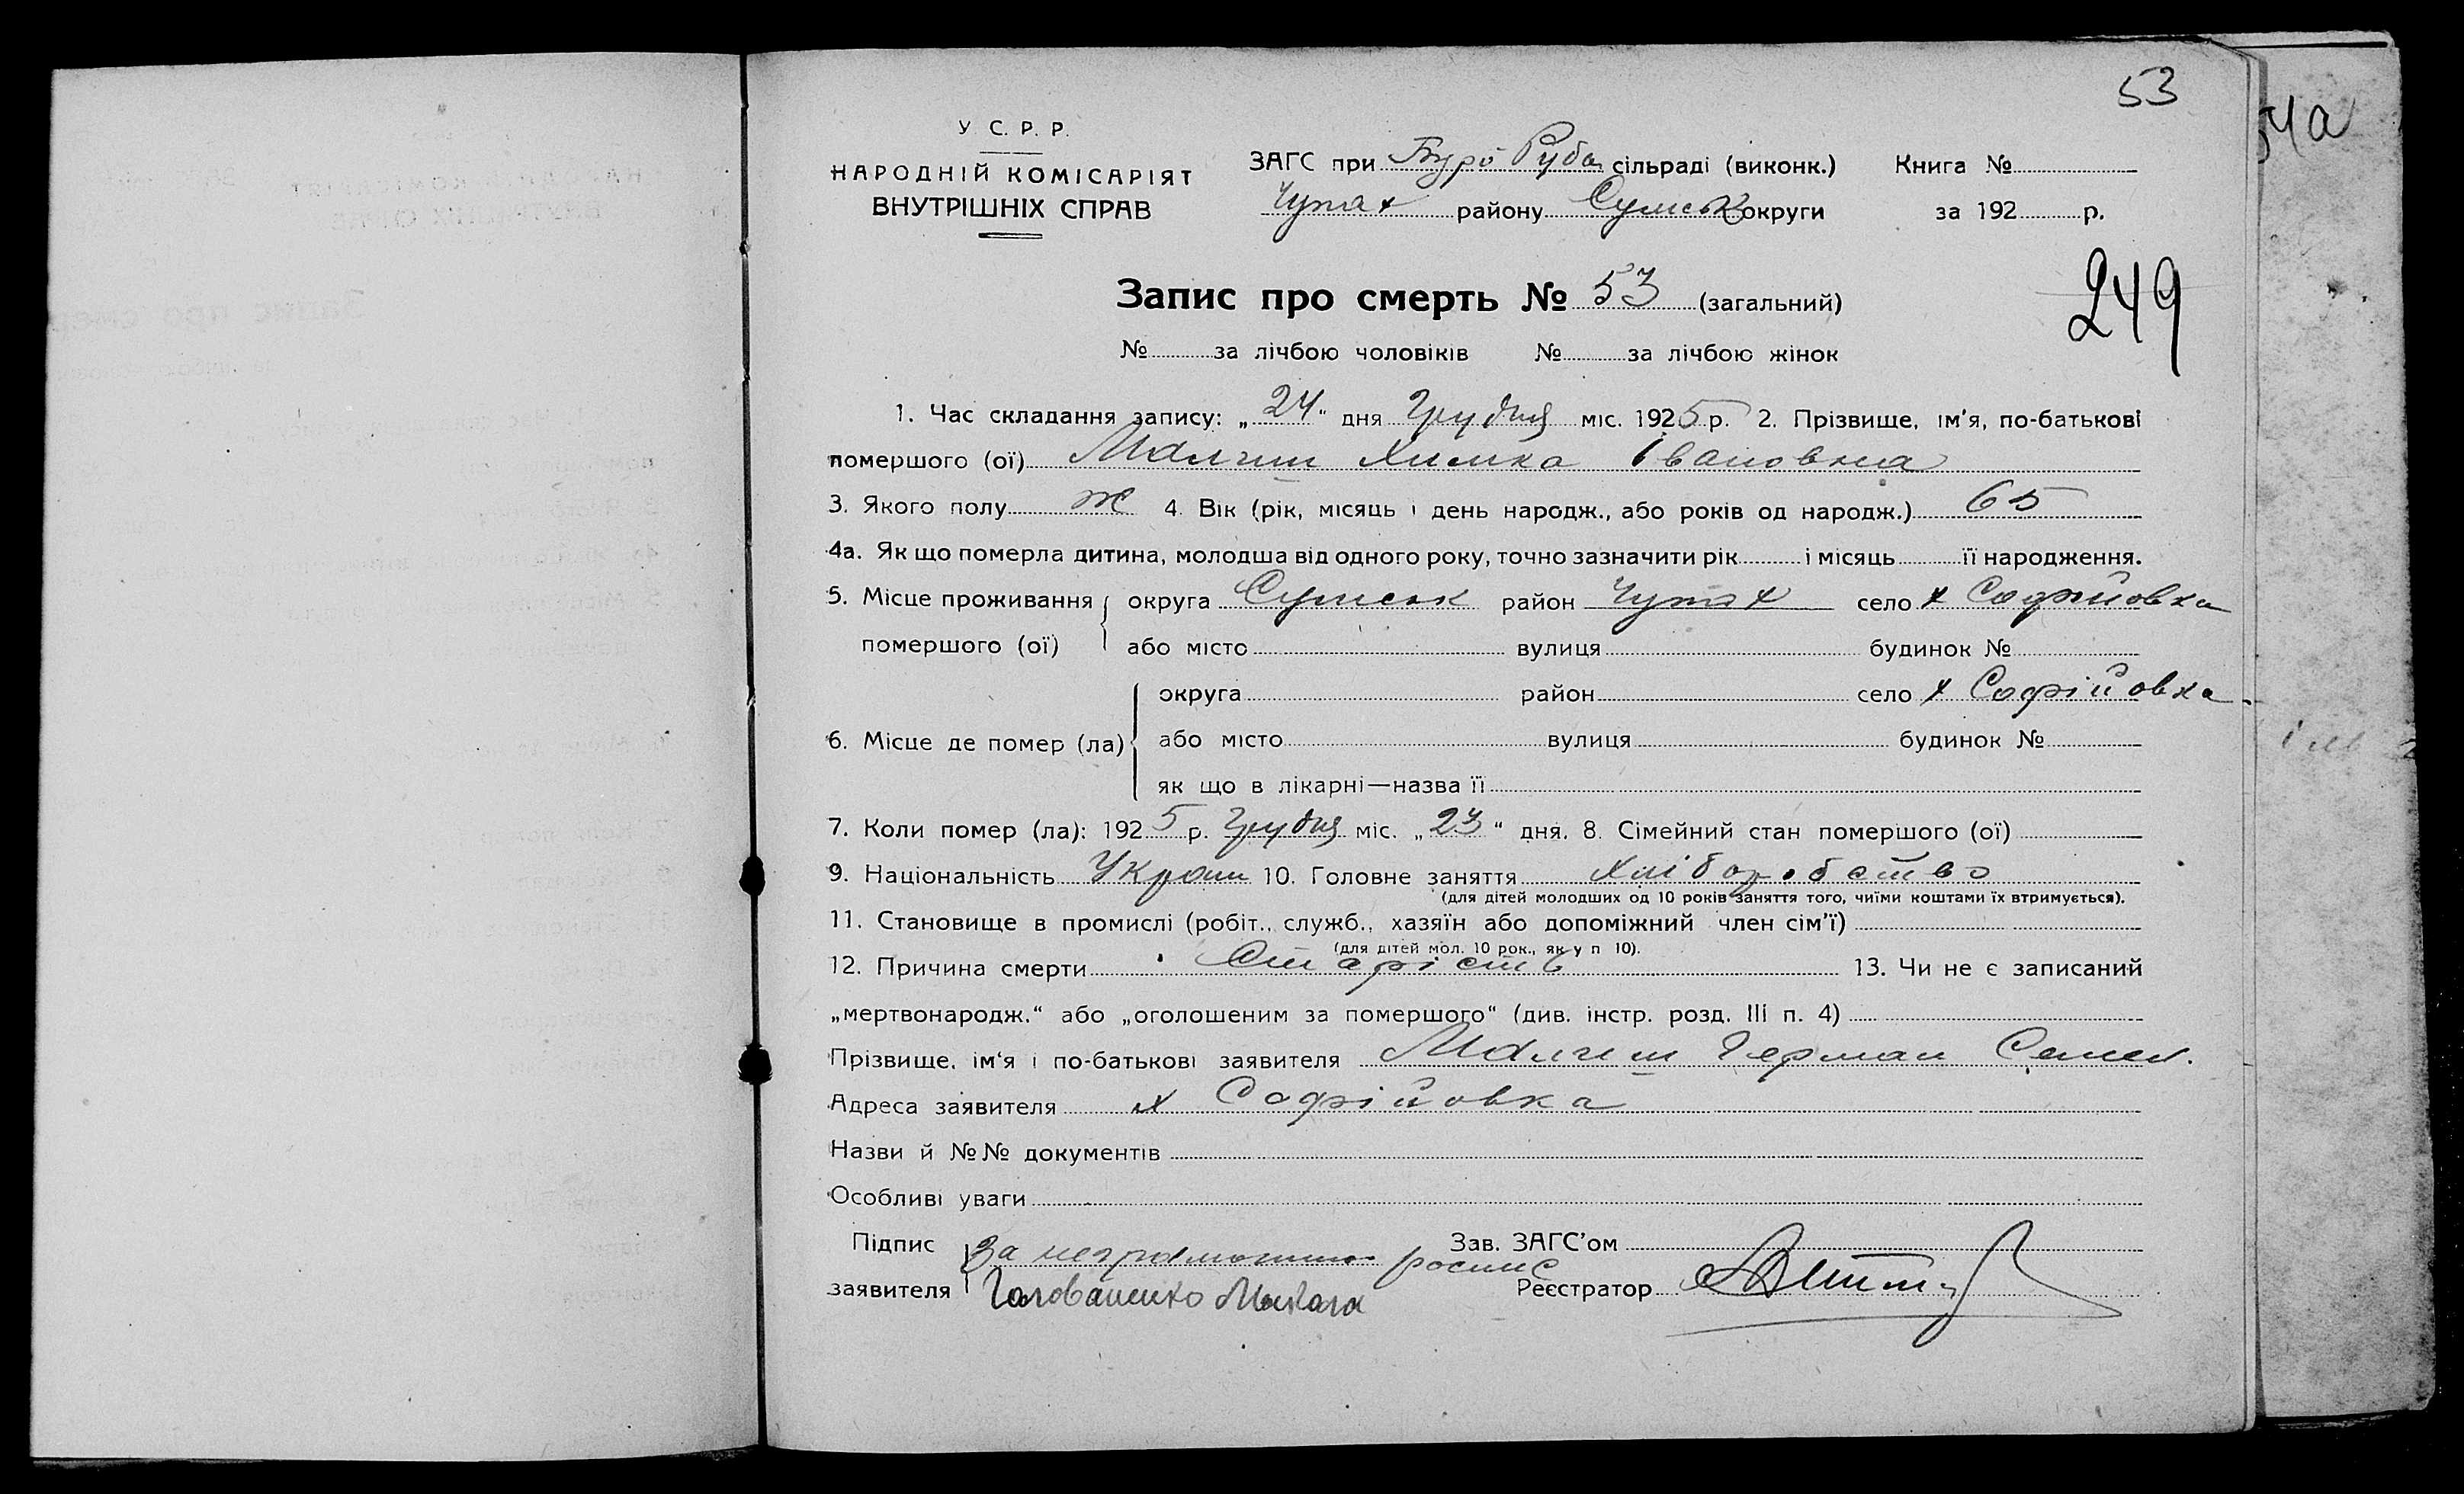 53
54а
У С. Р. Р.
НАРОДНІЙ КОМІСАРІЯТ
ВНУТРІШНІХ СПРАВ
ЗАГС при Буро Руба сільраді (виконк.) Книга №
Чупах району Сумськ округи за 192 р.
249
Запис про смерть № 53 (загальний)
№ за лічбою чоловіків № за лічбою жінок
1. Час складання запису: „24“ дня Грудня міс. 1925 р. 2. Прізвище, ім'я, по-батькові
помершого (ої) Малчиш Химка Івановна
3. Якого полу ж 4. Вік (рік, місяць і день народж., або років од народж.) 65
4а. Як що померла дитина, молодша від одного року, точно зазначити рік і місяць її народження.
5. Місце проживання округа Сумськ район Чупах село х Софійовка
помершого (ої) або місто вулиця будинок №
округа район село х Софійовка
6. Місце де помер (ла) або місто вулиця будинок №
як що в лікарні—назва її
7. Коли помер (ла): 1925 р. Грудня міс. „23“ дня. 8. Сімейний стан помершого (ої)
9. Національність Україн 10. Головне заняття Хліборобство
(для дітей молодших од 10 років заняття того, чиїми коштами їх втримується).
11. Становище в промислі (робіт., служб., хазяїн або допоміжний член сім'ї)
(для дітей мол. 10 рок., як у п 10).
12. Причина смерти Старість 13. Чи не є записаний
„мертвонародж.“ або „оголошеним за помершого“ (див. інстр. розд. III п. 4)
Прізвище, ім'я і по-батькові заявителя Малчиш Герман Семен.
Адреса заявителя х Софійовка
Назви й №№ документів
Особливі уваги
Підпис За неграмотного роспис Зав. ЗАГС'ом
заявителя Голованенко Микола Реєстратор